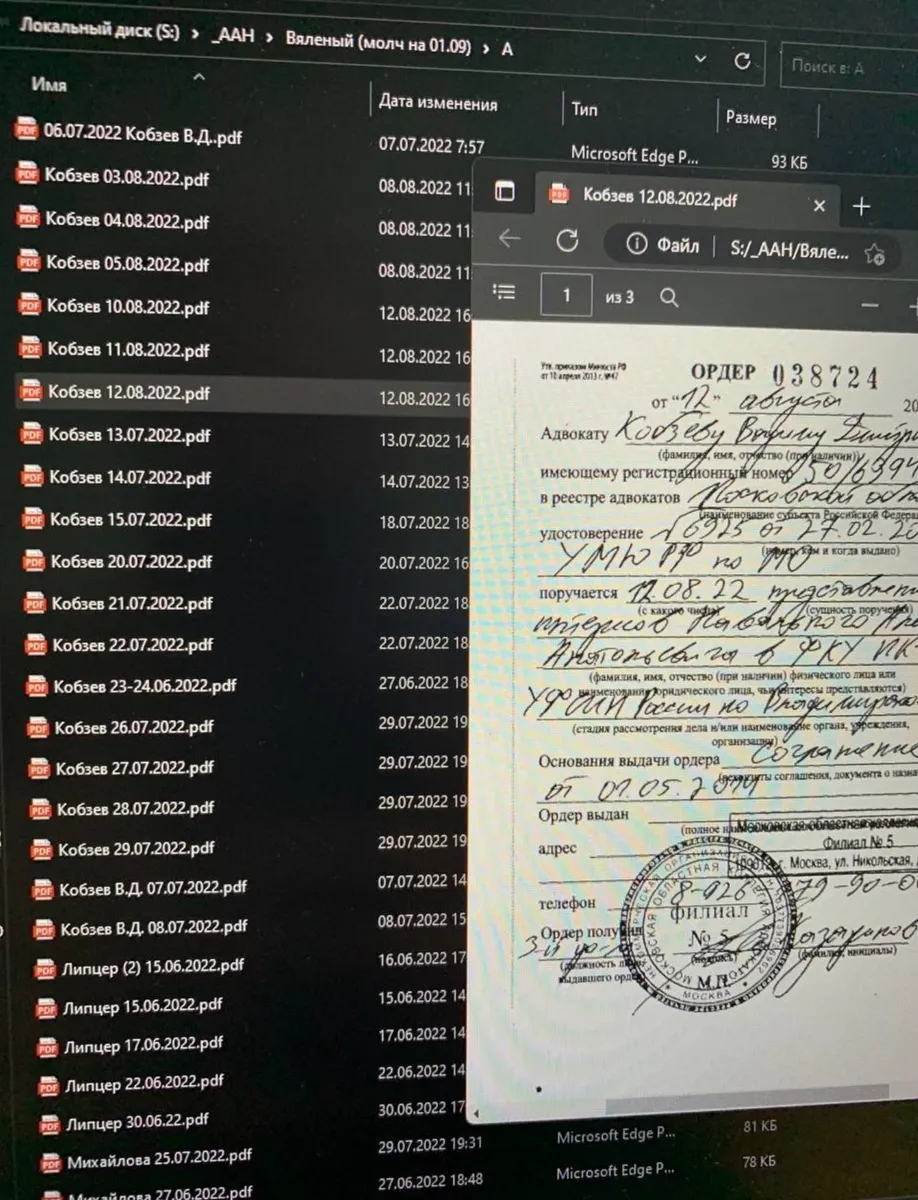 Локальный диск (S:) › _ААН › Вяленый (молч на 01.09) › А
Поиск в: А
Имя
Дата изменения
Тип
Размер
06.07.2022 Кобзев В.Д..pdf 07.07.2022 7:57 Microsoft Edge P... 93 КБ
Кобзев 03.08.2022.pdf 08.08.2022 11
Кобзев 04.08.2022.pdf 08.08.2022 11
Кобзев 05.08.2022.pdf 08.08.2022 11
Кобзев 10.08.2022.pdf 12.08.2022 16
Кобзев 11.08.2022.pdf 12.08.2022 16
Кобзев 12.08.2022.pdf 12.08.2022 16
Кобзев 13.07.2022.pdf 13.07.2022 14
Кобзев 14.07.2022.pdf 14.07.2022 13
Кобзев 15.07.2022.pdf 18.07.2022 18
Кобзев 20.07.2022.pdf 20.07.2022 16
Кобзев 21.07.2022.pdf 22.07.2022 18
Кобзев 22.07.2022.pdf 22.07.2022 18
Кобзев 23-24.06.2022.pdf 27.06.2022 18
Кобзев 26.07.2022.pdf 29.07.2022 19
Кобзев 27.07.2022.pdf 29.07.2022 19
Кобзев 28.07.2022.pdf 29.07.2022 19
Кобзев 29.07.2022.pdf 29.07.2022 19
Кобзев В.Д. 07.07.2022.pdf 07.07.2022 14
Кобзев В.Д. 08.07.2022.pdf 08.07.2022 15
Липцер (2) 15.06.2022.pdf 16.06.2022 17
Липцер 15.06.2022.pdf 15.06.2022 14
Липцер 17.06.2022.pdf 17.06.2022 14
Липцер 22.06.2022.pdf 22.06.2022 14
Липцер 30.06.22.pdf 30.06.2022 17
Михайлова 25.07.2022.pdf 29.07.2022 19:31 Microsoft Edge P... 81 КБ
Михайлова 27.06.2022.pdf 27.06.2022 18:48 Microsoft Edge P... 78 КБ
Кобзев 12.08.2022.pdf
Файл S:/_ААН/Вяле...
1 из 3
Утв. приказом Минюста РФ
от 10 апреля 2013 г. №47
ОРДЕР 038724
от "12" августа 20
Адвокату Кобзеву Вадиму Дмитри
(фамилия, имя, отчество (при наличии))
имеющему регистрационный номер 50/6994
в реестре адвокатов Московской обл
(наименование субъекта Российской Федера
удостоверение № 6925 от 27.02.20
(номер, кем и когда выдано)
УМЮ РФ по МО
поручается 12.08.22 представлени
(с какого числа) (сущность поручения)
интересов Навального Але
Анатольевича в ФКУ ИК
(фамилия, имя, отчество (при наличии) физического лица или
наименование юридического лица, чьи интересы представляются)
УФСИН России по Владимирско
(стадия рассмотрения дела и/или наименование органа, учреждения,
организации)
Основания выдачи ордера Соглашение
(реквизиты соглашения, документа о назна
от 01.05.2014
Ордер выдан Московская областная коллегия
(полное
Филиал № 5
адрес г. Москва, ул. Никольская,
телефон 8-926 79-90-0
Ордер
(подпись) (фамилия, инициалы)
(должность
выдавшего
МОСКОВСКАЯ ОБЛАСТНАЯ КОЛЛЕГИЯ АДВОКАТОВ
филиал
№ 5
М.П.
МОСКВА